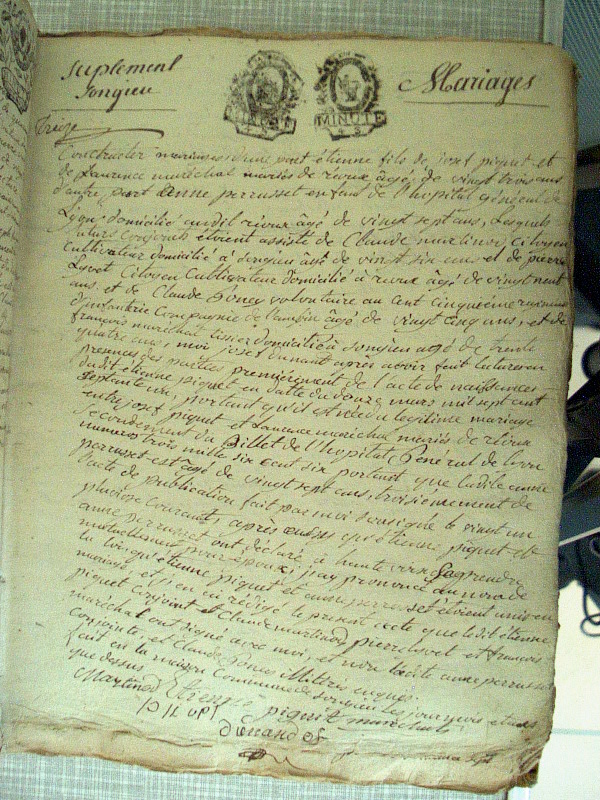 Suplement
Songieu
Mariages
MINUTE
Treize
mariages d'une part étienne fils de josef piquet et
de Laurence maréchal mariés de rieux âgé de vingt trois ans
d'autre part anne perrusset enfant de l'hopital général de
Lyon domicilié audit rieux âgé de vingt sept ans, Lesquels
conjoints étoient assisté de Claude martinod Citoyen
Cultivateur domicilié à Songieu âgé de vingt six ans et de pierre
Lyvet Citoyen Cultivateur domicilié à rieux âgé de vingt neuf
ans et de Claude Goney volontaire au Cent Cinquiéme
d'infanterie Compagnie de âgé de vingt cinq ans, et de
françois maréchal tissier domicilié à Songieu agé de trente
quatre ans, moi josef après avoir fait lecture en
presences des parties premiérement de l'acte de naissances
dudit étienne piquet en datte du douze mars mil sept cent
septante un, portant qu'il est né du legitime mariage
entre josef piquet et Laurence maréchal mariés de rieux
Secondement du Billet de l'hopital Général de Lyon
numeros trois mille six cent six portant que ladite anne
perrusset est âgé de vingt sept ans, troisiemement de
l'acte de publication fait par moi Soussigné le vingt un
pluviose Courant, après aussi qu'étienne piquet et
anne perrusset ont déclaré à haute voix Se prendre
mutuellement pour époux, j'ay prononcé au nom de
la loi qu'étienne piquet et anne perrusset étoient unis en
mariage, et j'en ai rédigé le present acte que ledit étienne
piquet Conjoint et Claude martinod pierre Lyvet et françois
maréchal ont signé avec moi, et non ladite anne perrusset
Conjointe, et Claude Goney
fait en la maison Commune de Songieu les jour mois et an
que dessus
Martinod Etienne piquet maréchal